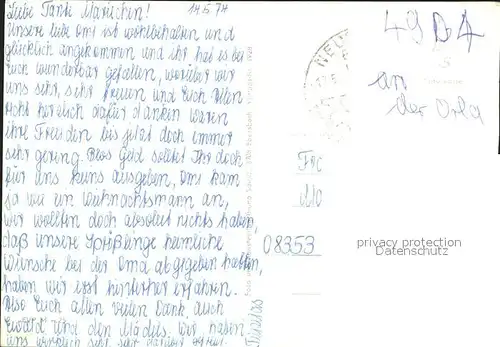 Liebe Tante Mariechen! 14.5.74
Unsere liebe Omi ist wohlbehalten und
glücklich angekommen und ihr hat es bei
Euch wunderbar gefallen, worüber wir
uns sehr, sehr freuen und Euch allen
recht herzlich dafür danken waren
ihre Freuden bis jetzt doch immer
sehr gering. Blos Geld solltet Ihr doch
für uns keins ausgeben, Omi kam
ja wie ein Weihnachtsmann an,
wir wollten doch absolut nichts haben,
daß unsere heimliche
Wünsche bei der Oma abgegeben hatten,
haben wir erst hinterher erfahren.
Also Euch allen vielen Dank auch
Ewald und den Mädels. Wir haben
uns wirklich sehr, sehr
NEU
49D4
an
der Orla
08353
privacy protection
Datenschutz